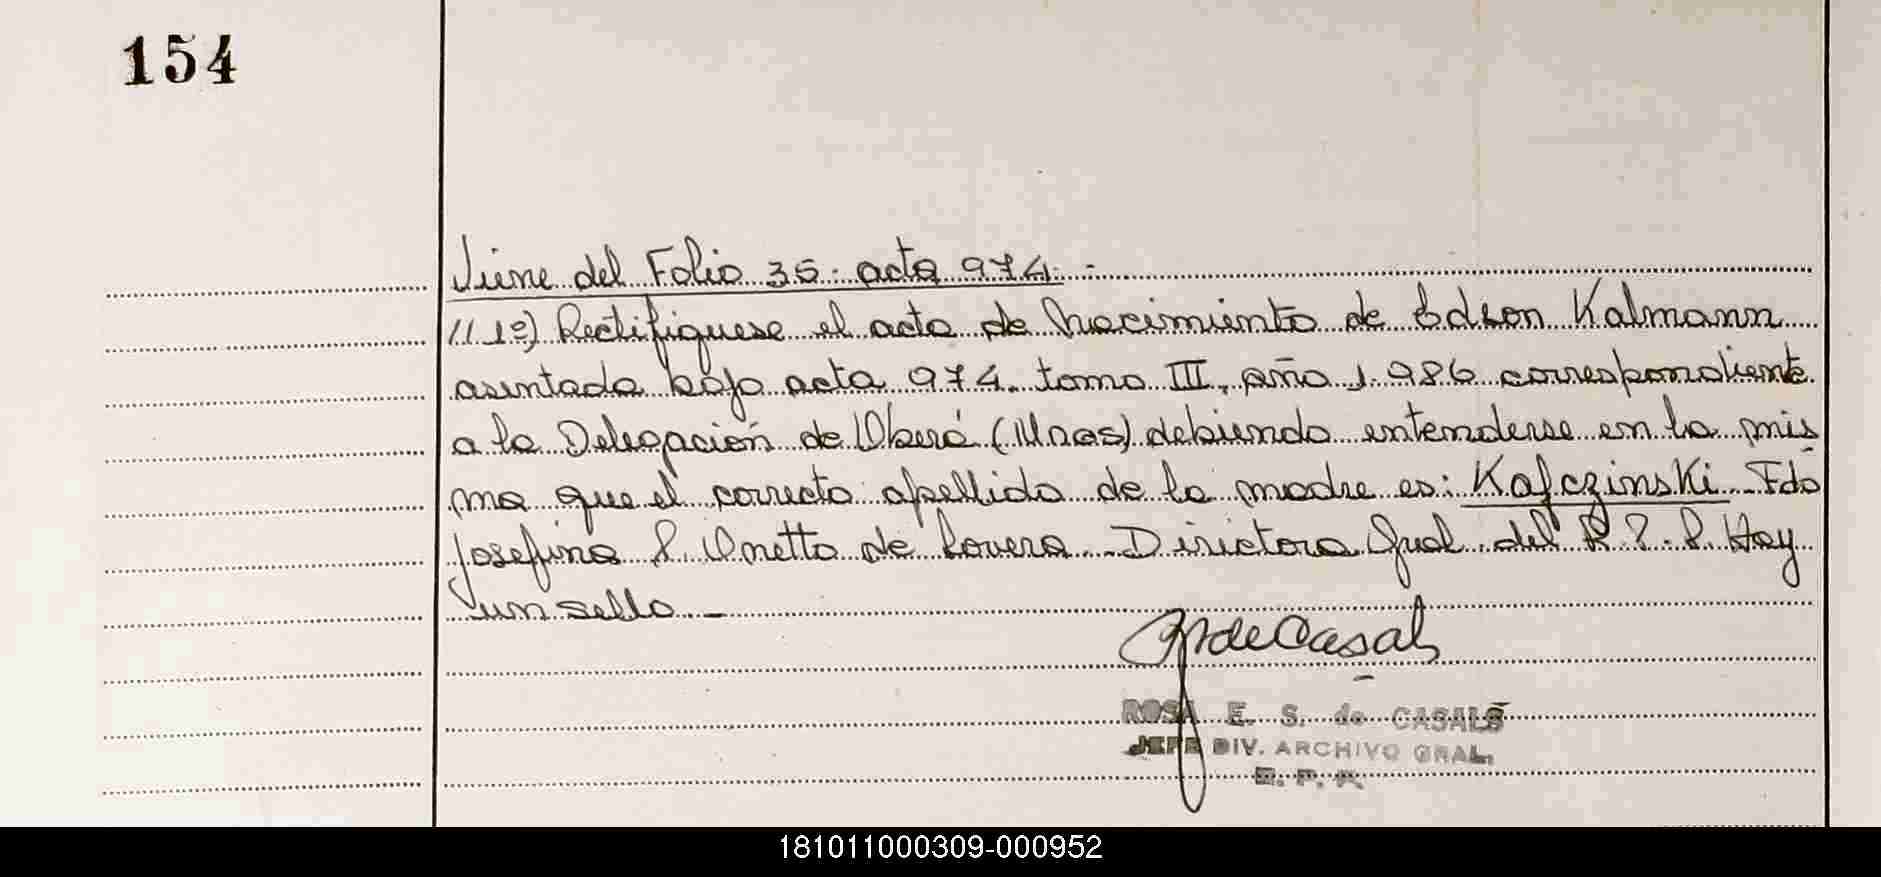 154
Viene del Folio 35. acta 974. -
//1º) Rectifíquese el acta de Nacimiento de Edson Kalmann
asentada bajo acta 974. tomo III, año 1.986 correspondiente
a la Delegación de Oberá (Mnes) debiendo entenderse en la mis
ma que el correcto apellido de la madre es: Kafczinski. Fdo
Josefina S. Onetto de Lovera. Directora Gral. del R.P.P. Hay
un sello. -
de Casals
ROSA E. S. de CASALS
JEFE DIV. ARCHIVO GRAL.
R. P. P.
181011000309-000952